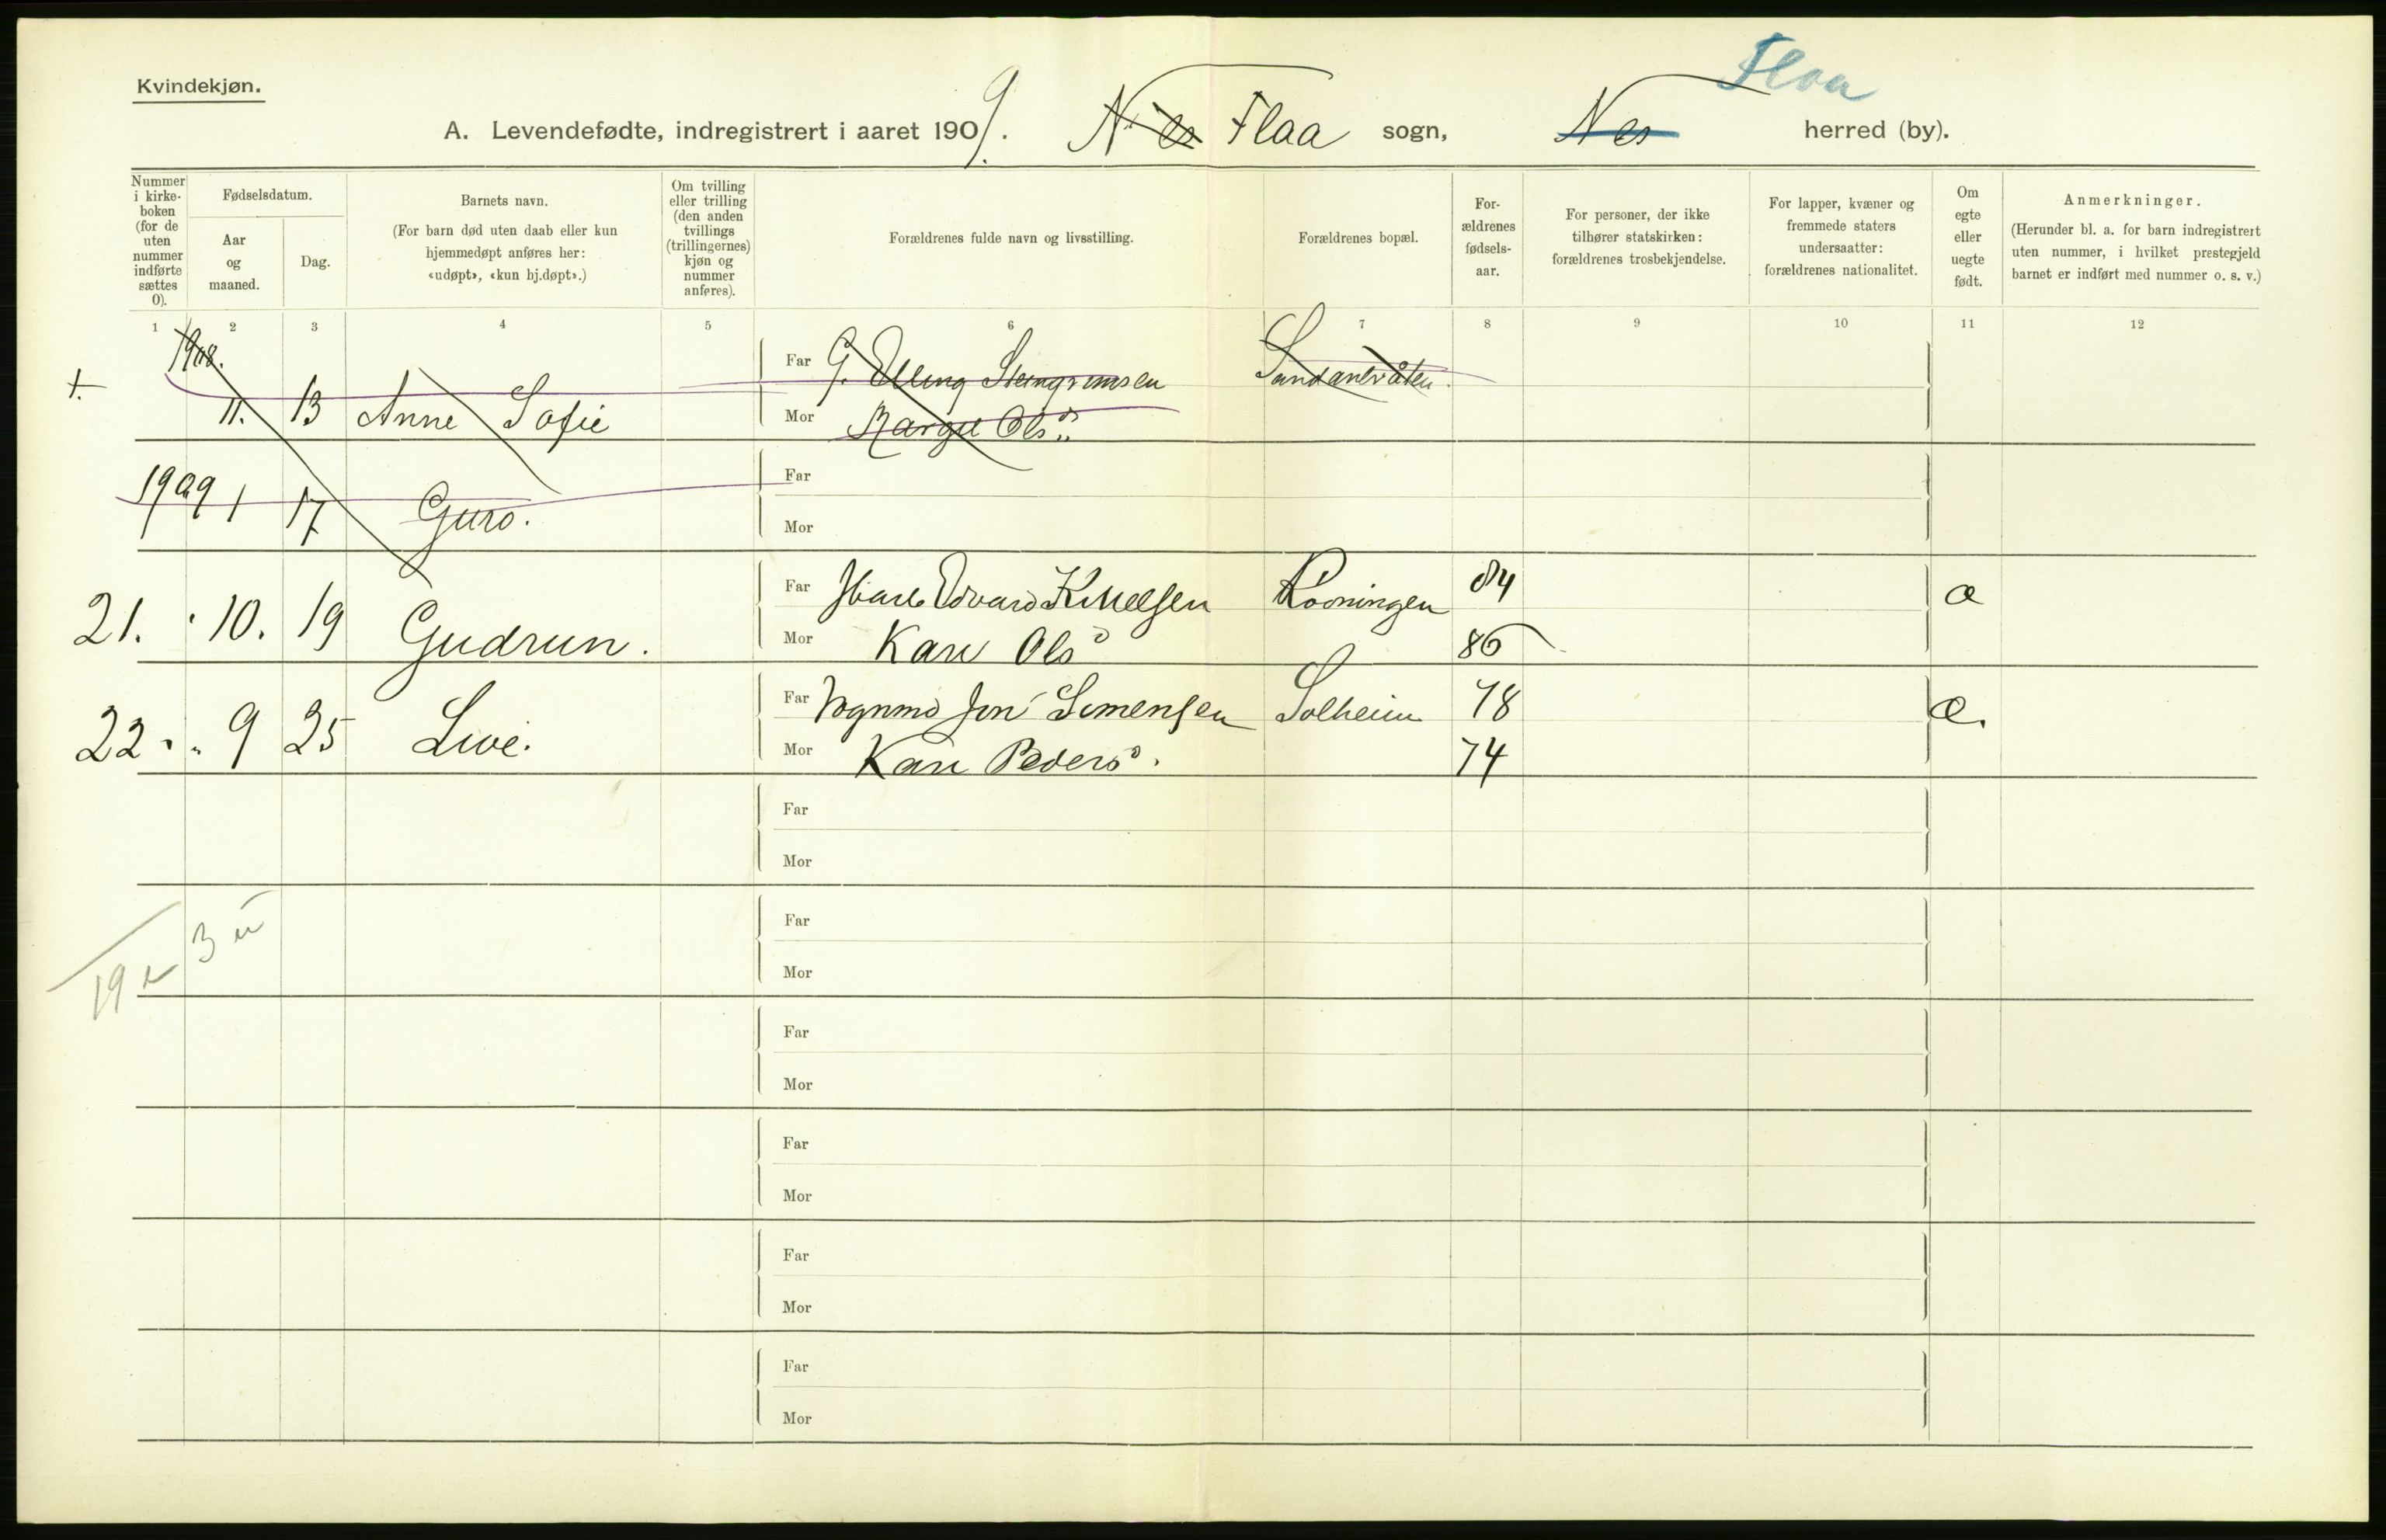 Kvindekjøn.
Flaa
A. Levendefødte, indregistrert i aaret 1909. Nes Flaa sogn, Nes herred (by).
Nummer i kirkeboken (for de uten nummer indførte sættes 0).
Fødselsdatum.
Aar og maaned.
Dag.
Barnets navn.
(For barn død uten daab eller kun hjemmedøpt anføres her: «udøpt», «kun hj.døpt».)
Om tvilling eller trilling (den anden tvillings (trillingernes) kjøn og nummer anføres).
Forældrenes fulde navn og livsstilling.
Forældrenes bopæl.
Forældrenes fødselsaar.
For personer, der ikke tilhører statskirken: forældrenes trosbekjendelse.
For lapper, kvæner og fremmede staters undersaatter: forældrenes nationalitet.
Om egte eller uegte født.
Anmerkninger.
(Herunder bl. a. for barn indregistrert uten nummer, i hvilket prestegjeld barnet er indført med nummer o. s. v.)
1 2 3 4 5 6 7 8 9 10 11 12
1908.
Far G. Elling Steingrimsen
11. 13 Anne Sofie
Mor Margit Olsd
1909 1 17 Guro.
Far
Mor
Far Edvard Killelsen 84 æ
21. 10. 19 Gudrun.
Mor Kari Olsd 86
Far Simensen Solheim 78 æ.
22. " 9 25 Live.
Mor Kari Pedersd. 74
Far
Mor
Far
3 u
19
Mor
Far
Mor
Far
Mor
Far
Mor
Far
Mor